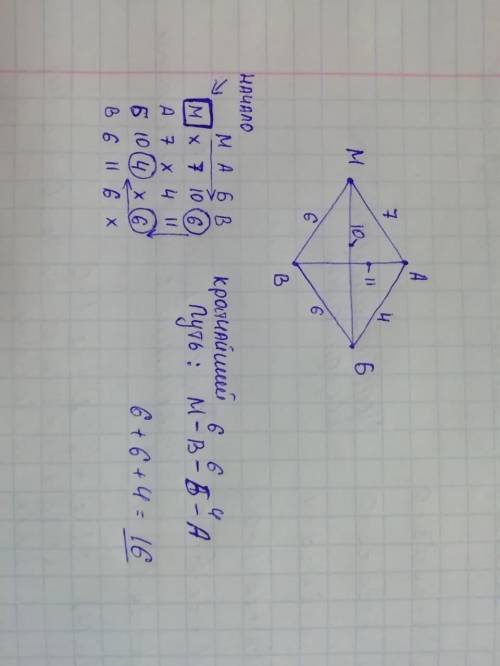 начало
М А Б В
М х 7 10 6
А 7 х 4 11
Б 10 4 х 6
В 6 11 6 х
М
7
А
10
11
4
6
В
6
Б
кратчайший
путь: М - В - Б - А
6 6 4
6 + 6 + 4 = 16